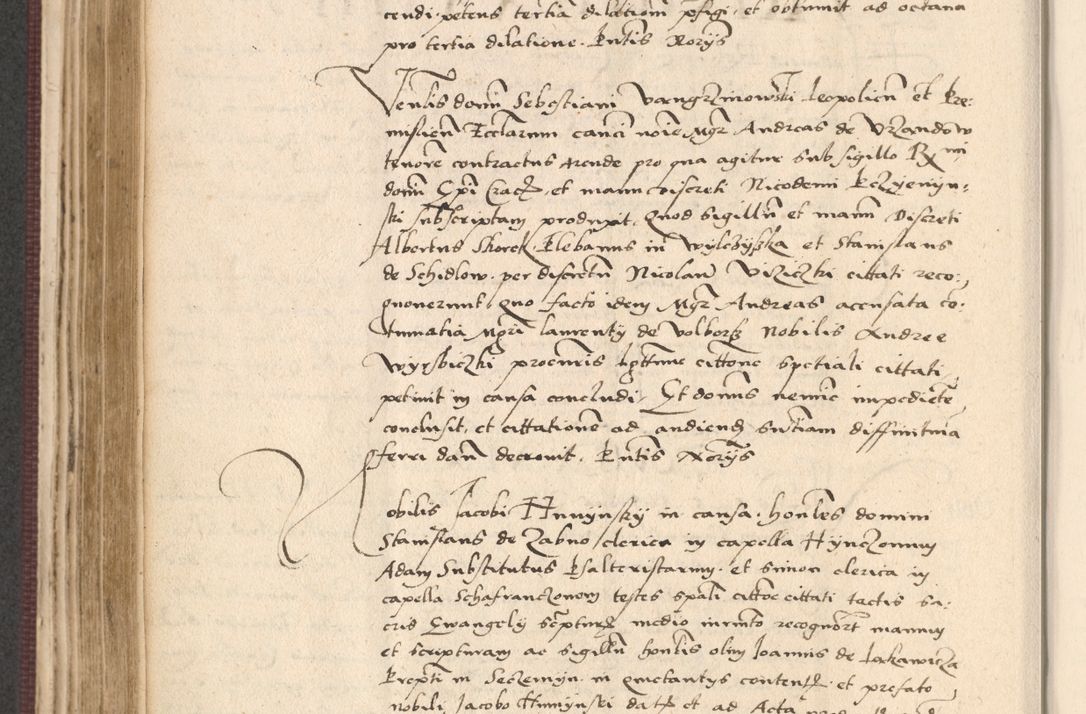 cendi petens tertiã dilation p̃figi, et obtinuit ad octana
pro tertia dilatione. Pntis Norys
Venlis domi Sebastiani Leopolien et Pre-
mislien Ecclarum canci noie Mgr Andreas de Vrzandow
tenore contractus Arende pro qua agitur sub sigillo R mi
domi Epi Crac, et manu discreti Nicodemi
ski subscriptam produxit, Quod sigillũ et manũ Discreti
Albertus Skorek Plebanus in et Stanislaus
de Schidlow per discretũ Nicolaũ cittati reco-
gnouerunt Quo facto idem Mgr Andreas accusata co-
tumatia Mgri laurenty de volborz Nobilis Andree
procuris lgttime cittone spetiali cittati
petiuit in causa concludi Et domus nemine impediete
conclusit, et cittatione ad audiend sntiam diffinitiua
fferri dam decreuit. Pntis Norys
Nobilis Jacobi Hnuynsky in causa. honles domini
Stanislaus de Zabno clerica in capella Hynczonum
Adam Substitutus Psalteristarum. et Simon clerica in
capella Schafranczonem testes spali cittoe cittati tactis sa-
cris Ewangely scpturis medio iurmto recognort manum
et scripturam ac sigillũ honlis olim Joannis de
Prepti in in quietantys content et prefato
nobili Jacobo Hnuynski dat et ad Acta